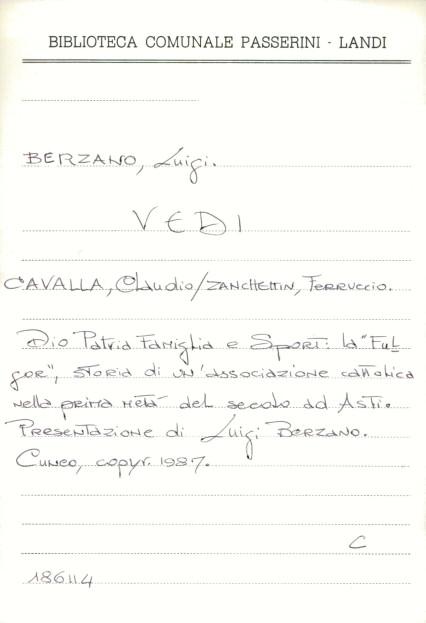 BIBLIOTECA COMUNALE PASSERINI - LANDI
BERZANO, Luigi.
VEDI
CAVALLA, Claudio/ZANCHETTIN, FERRUCCIO.
Dio Patria Famiglia e Sport: la "Ful-
gor", storia di un'associazione cattolica
nella prima metà del secolo ad Asti.
Presentazione di Luigi Berzano.
Cuneo, copyr. 1987.
C
186114